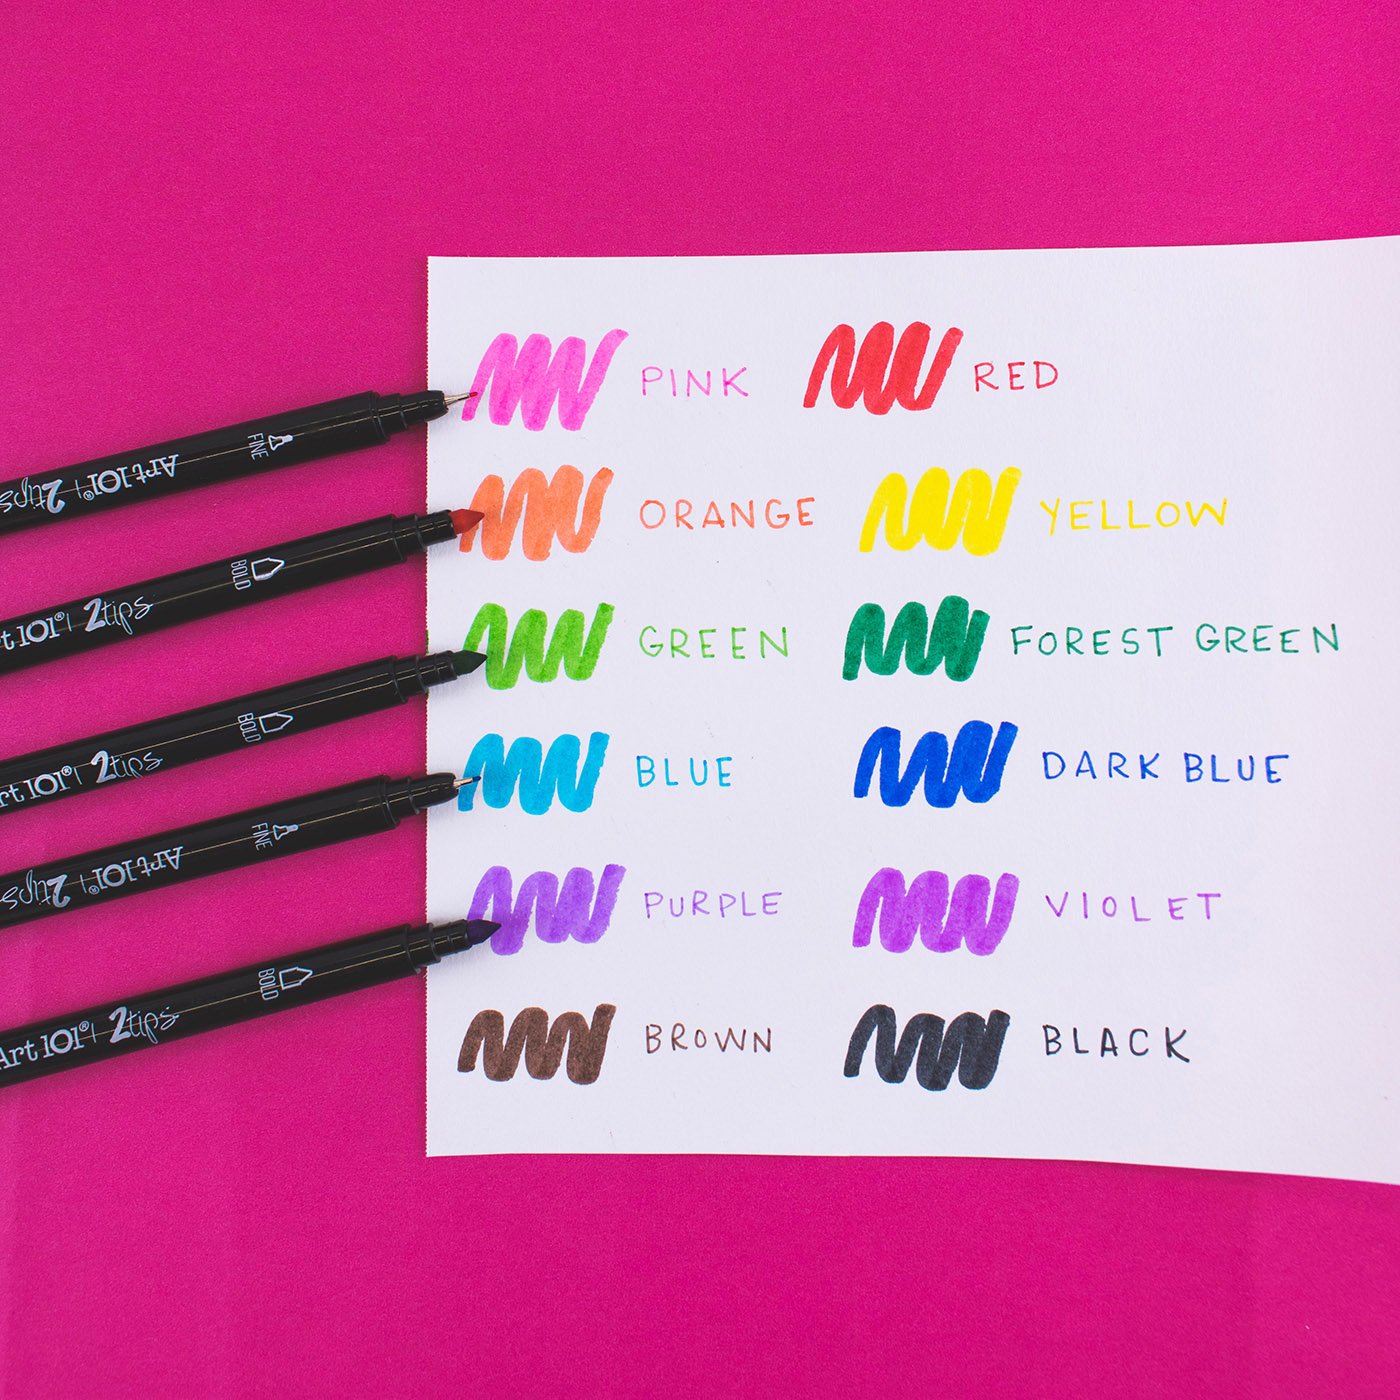 PINK RED
FINE
Art 101® | 2tips
ORANGE YELLOW
BOLD
t 101® | 2tips
GREEN FOREST GREEN
BOLD
rt 101® | 2tips
BLUE DARK BLUE
FINE
Art 101® | 2tips
PURPLE VIOLET
BOLD
Art 101® | 2tips
BROWN BLACK